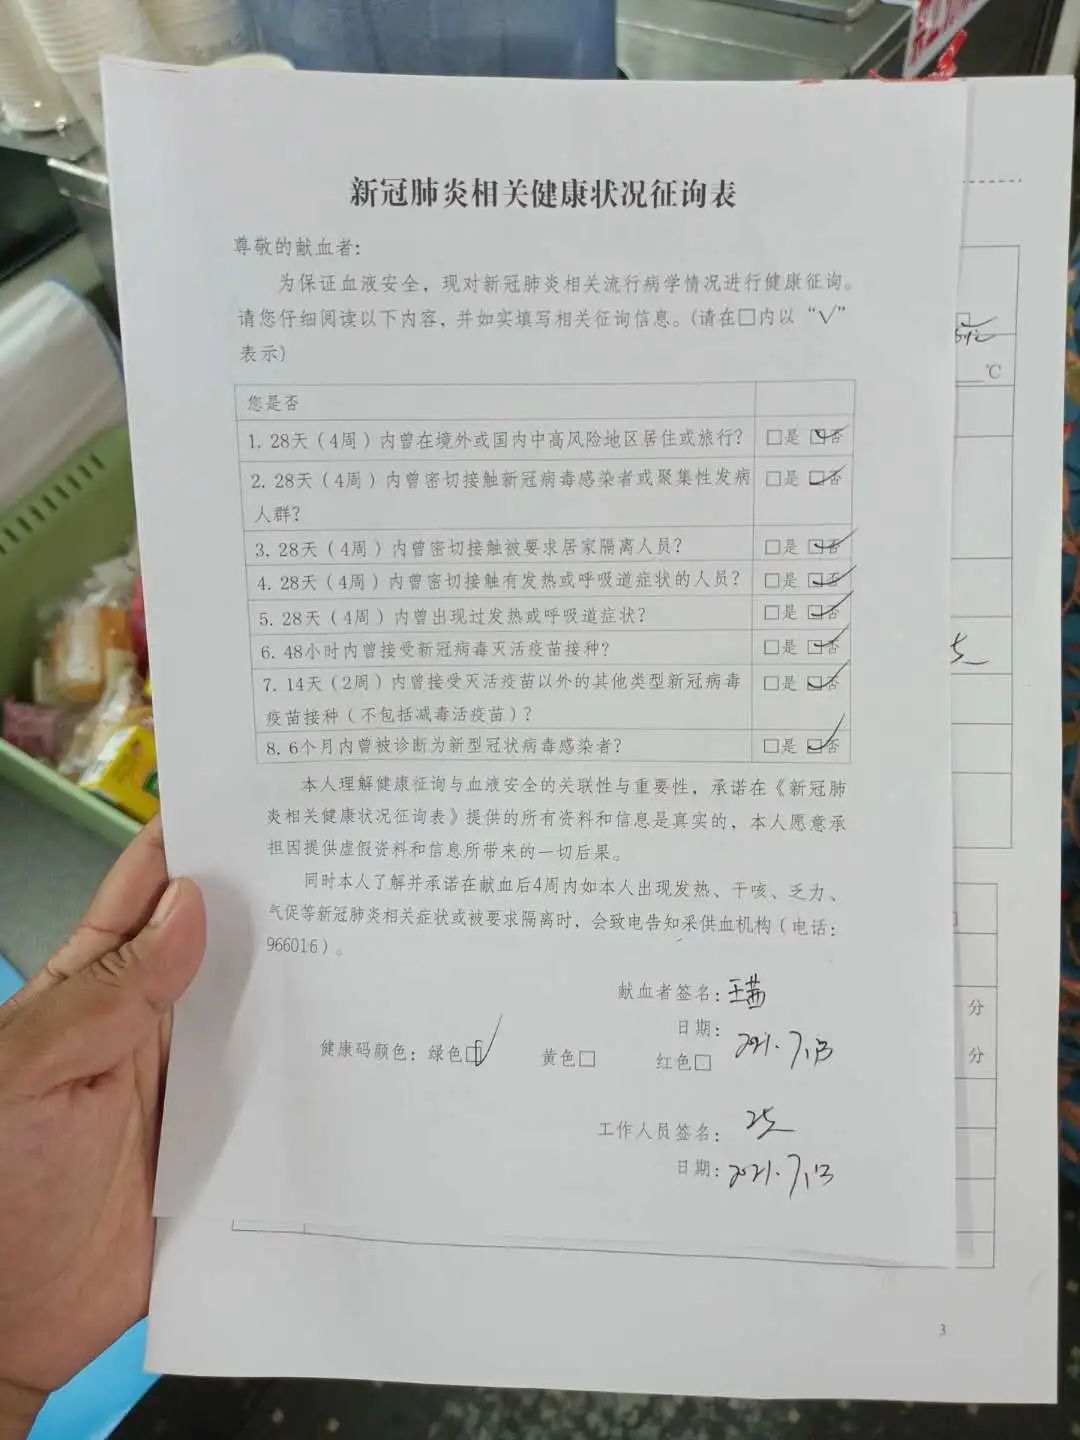 新冠肺炎相关健康状况征询表
尊敬的献血者：
为保证血液安全，现对新冠肺炎相关流行病学情况进行健康征询。
请您仔细阅读以下内容，并如实填写相关征询信息。（请在□内以“√”
表示）
您是否
1. 28天（4周）内曾在境外或国内中高风险地区居住或旅行？ □是 ☑否
2. 28天（4周）内曾密切接触新冠病毒感染者或聚集性发病 □是 ☑否
人群？
3. 28天（4周）内曾密切接触被要求居家隔离人员？ □是 ☑否
4. 28天（4周）内曾密切接触有发热或呼吸道症状的人员？ □是 ☑否
5. 28天（4周）内曾出现过发热或呼吸道症状？ □是 ☑否
6. 48小时内曾接受新冠病毒灭活疫苗接种？ □是 ☑否
7. 14天（2周）内曾接受灭活疫苗以外的其他类型新冠病毒 □是 ☑否
疫苗接种（不包括减毒活疫苗）？
8. 6个月内曾被诊断为新型冠状病毒感染者？ □是 ☑否
本人理解健康征询与血液安全的关联性与重要性，承诺在《新冠肺
炎相关健康状况征询表》提供的所有资料和信息是真实的，本人愿意承
担因提供虚假资料和信息所带来的一切后果。
同时本人了解并承诺在献血后4周内如本人出现发热、干咳、乏力、
气促等新冠肺炎相关症状或被要求隔离时，会致电告知采供血机构（电话：
966016）。
献血者签名：王茜
日期：2021.7.13
健康码颜色：绿色☑ 黄色□ 红色□
工作人员签名：
日期：2021.7.13
℃
分
分
3